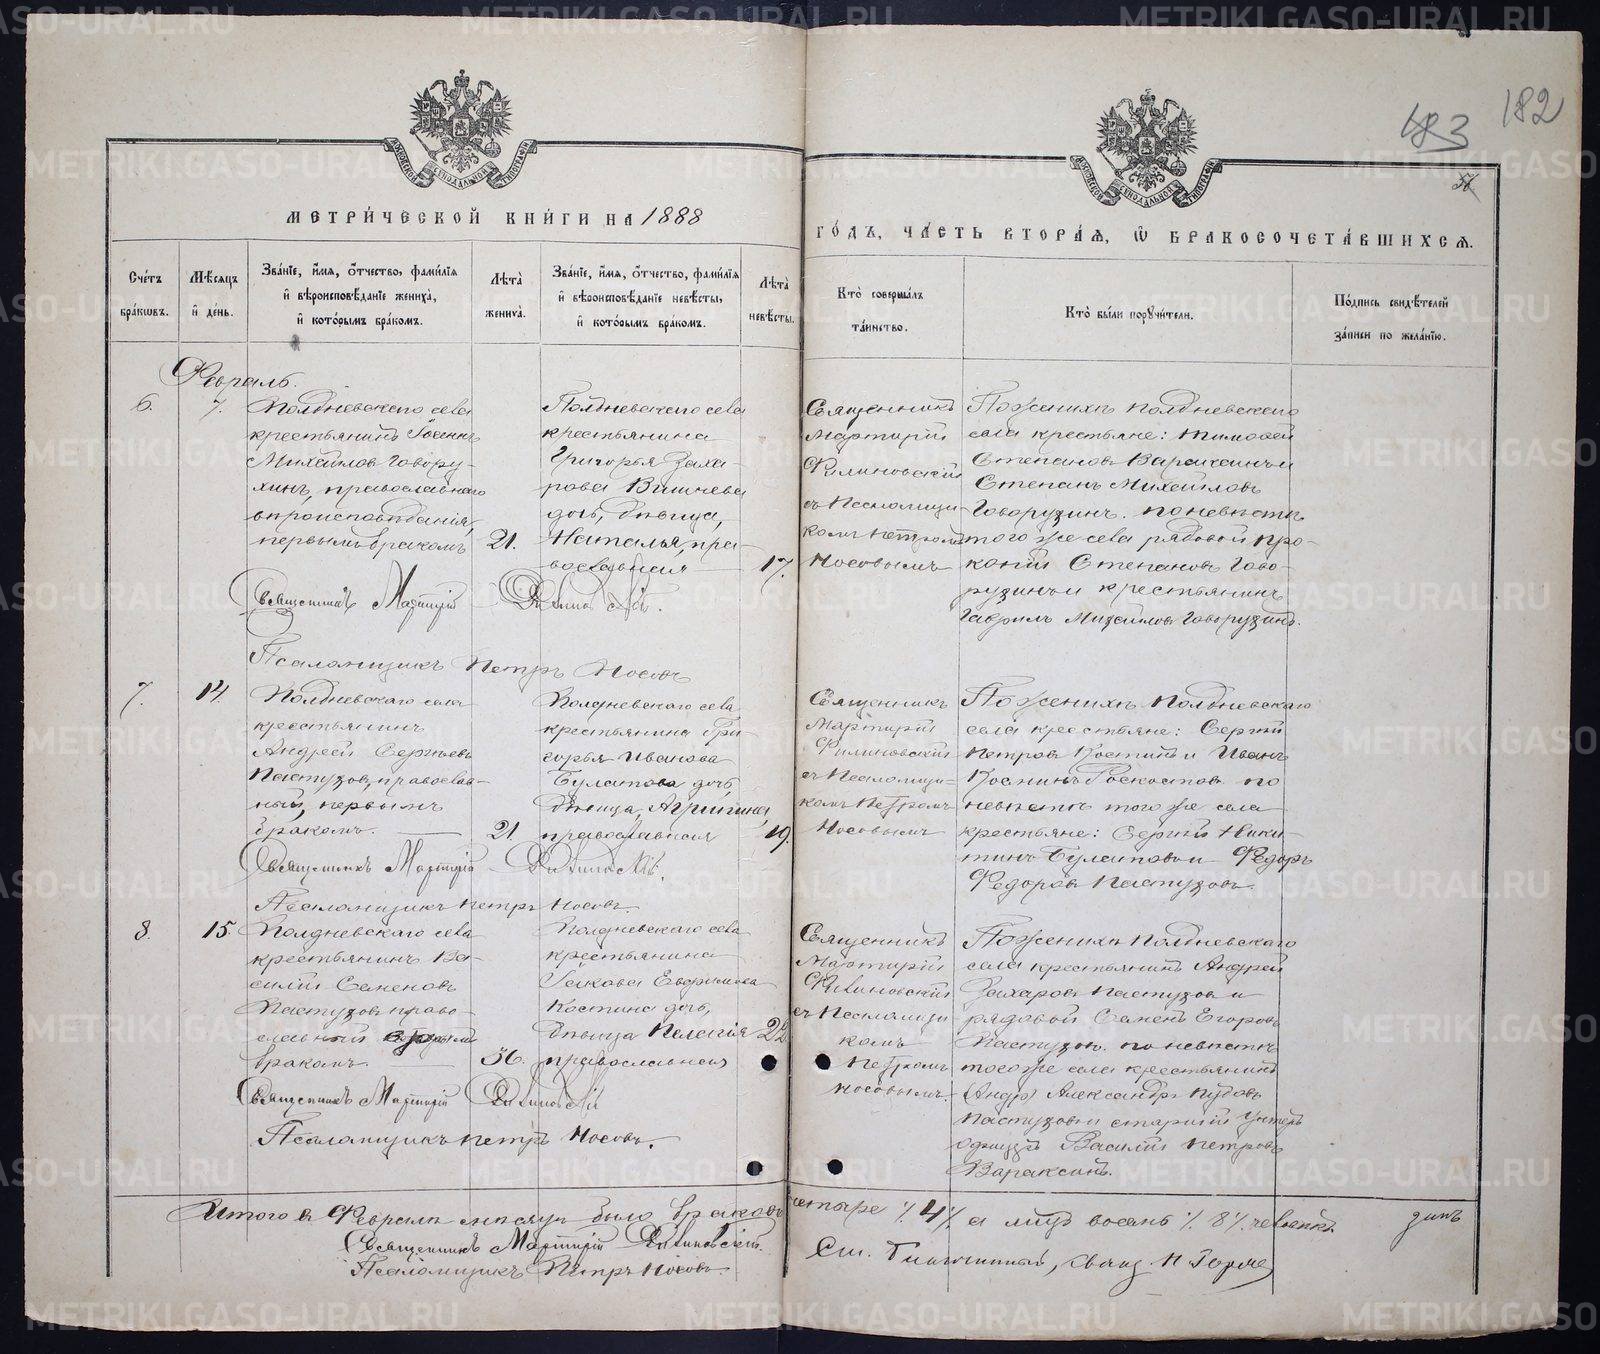 182
183
МЕТРИЧЕСКОЙ КНИГИ НА 1888
ГОДЪ, ЧАСТЬ ВТОРАЯ, Ѡ БРАКОСОЧЕТАВШИХСЯ.
Счетъ браковъ.
Мѣсяцъ и день.
Званіе, имя, отчество, фамилія
и вѣроисповѣданіе жениха,
и которымъ бракомъ.
Лѣта жениха.
Званіе, имя, отчество, фамилія
и вѣроисповѣданіе невѣсты,
и которымъ бракомъ.
Лѣта невѣсты.
Кто совершалъ
таинство.
Кто были поручители.
Подпись свидѣтелей
записи по желанію.
Февраль.
6.
7.
Полдневскаго села
крестьянинъ
Михайловъ Говору-
хинъ, православнаго
вѣроисповѣданія,
первымъ бракомъ
21.
Полдневскаго села
крестьянина
Григорья Заха-
рова Вишнева
дочь, дѣвица,
Наталья, пра-
вославная
17.
Священникъ
Мартирій
Филиновскій
съ Псаломщи-
комъ Петромъ
Носовымъ
По женихѣ Полдневскаго
села крестьяне: Тимофей
Степановъ Вараксинъ и
Степанъ Михайловъ
Говорухинъ. по невѣстѣ
того же села рядовой Про-
копій Степановъ Гово-
рухинъ и крестьянинъ
Гаврилъ Михайловъ Говорухинъ.
Священникъ Мартирій Филиновскій.
Псаломщикъ Петръ Носовъ
7.
14.
Полдневскаго села
крестьянинъ
Андрей Сергѣевъ
Пастуховъ, православ-
ный, первымъ
бракомъ.
21
Полдневскаго села
крестьянина Гри-
горья Иванова
Булатова дочь,
дѣвица, Агрипина,
православная
19.
Священникъ
Мартирій
Филиновскій
съ Псаломщи-
комъ Петромъ
Носовымъ
По женихѣ Полдневскаго
села крестьяне: Сергій
Петровъ Костинъ и Иванъ
по
невѣстѣ того же села
крестьяне: Сергій Ники-
тинъ Булатовъ и Федоръ
Федоровъ Пастуховъ.
Священникъ Мартирій Филиновскій.
Псаломщикъ Петръ Носовъ.
8.
15.
Полдневскаго села
крестьянинъ Ва-
силій Семеновъ
Пастуховъ право-
славный
бракомъ.
36.
Полдневскаго села
крестьянина
Іакова Евфимова
Костина дочь,
дѣвица Пелагія
православная
22
Священникъ
Мартирій
Филиновскій
съ Псаломщи
комъ
Петромъ
Носовымъ.
По женихѣ Полдневскаго
села крестьянинъ Андрей
Захаровъ Пастуховъ и
рядовой Семенъ Егоровъ
Пастуховъ. по невѣстѣ
того же села крестьянинъ
(Андр) Александръ
Пастуховъ и старшій унтеръ
офицеръ Василій Петровъ
Вараксинъ.
Священникъ Мартирій Филиновскій
Псаломщикъ Петръ Носовъ.
Итого въ Февралѣ мѣсяцѣ было браковъ четыре % 4 % а лицъ восемь % 8 % человѣкъ.
Священникъ Мартирій Филиновскій.
Псаломщикъ Петръ Носовъ.
METRIKI.GASO-URAL.RU